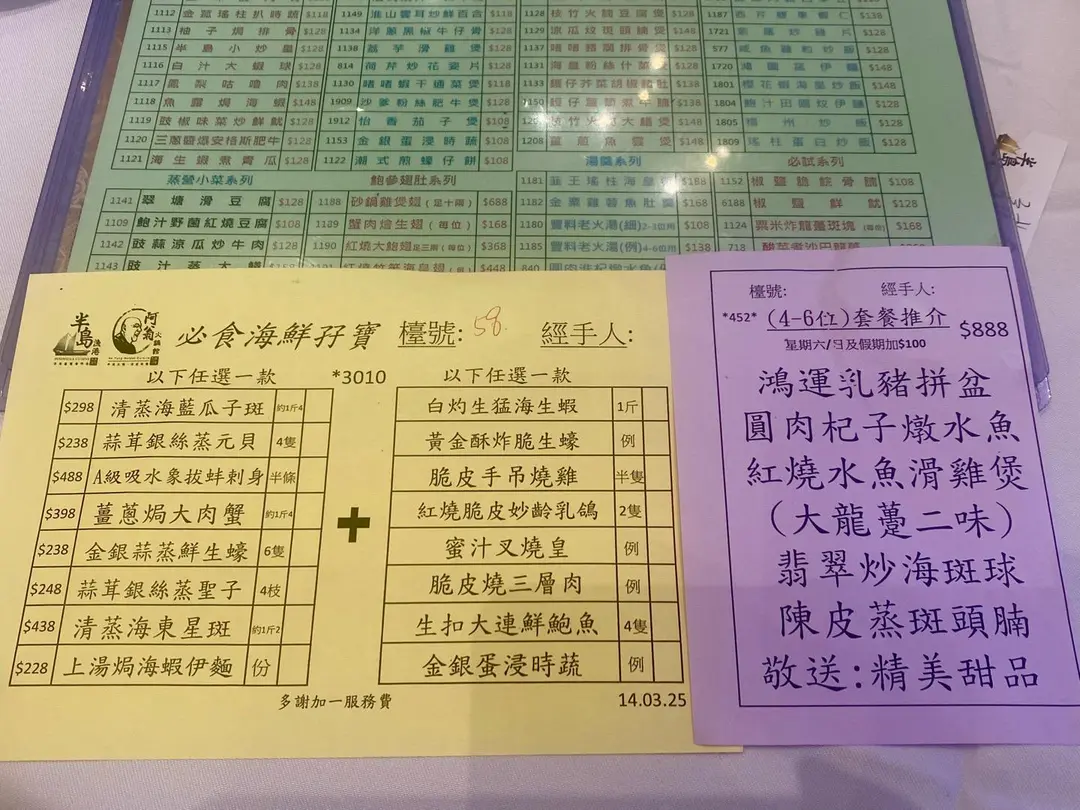 1112 金菰瑤柱扒時蔬 $118
1113 柚子焗排骨 $128
1115 半島小炒皇 $128
1116 白汁大蝦球 $128
1117 鳳梨咕嚕肉 $138
1118 魚露焗海蝦 $148
1119 豉椒味菜炒鮮魷 $128
1120 三蔥鹽爆安格斯肥牛 $128
1121 海生蝦煮膏瓜 $128
1149 淮山雲耳炒鮮百合 $118
1134 洋蔥黑椒牛仔骨 $128
1138 荔芋滑雞煲 $118
814 荷芹炒花腩片 $128
1130 啫啫蝦干通菜煲 $108
1909 沙爹粉絲肥牛煲 $128
1912 怡香茄子煲 $108
1153 金銀蛋浸時蔬 $108
1122 潮式煎蠔仔餅 $108
1128 枝竹火腩豆腐煲 $118
1129 涼瓜炆斑頭腩煲 $148
1137 啫啫豬膶排骨煲
1131 海皇粉絲什菜煲
1133
1150
1208 薑蔥魚雲煲 $128
1187
1721
577 咸魚雞粒炒飯
1720 $148
1801 櫻花蝦海皇炒飯 $148
1804 鮑汁田園炆伊麵 $128
1805 揚州炒飯 $128
1809 瑤柱蛋白炒飯 $128
蒸營小菜系列
1141 翠塘滑豆腐 $128
1109 鮑汁野菌紅燒豆腐 $108
1142 豉蒜涼瓜炒牛肉 $128
1143
鮑參翅肚系列
1188 砂鍋雞煲翅 (足十兩) $688
1189 蟹肉燴生翅 (每位) $168
1190 紅燒大鮑翅 足三兩 (每位) $368
$448
湯羹系列
1181 韮王瑤柱海皇羹 $188
1182 金粟雞蓉魚肚羹 $168
1180 豐料老火湯(細) 2-3位用 $108
1185 豐料老火湯(例) 4-6位用 $138
840
必試系列
1152 椒鹽脆豌骨腩 $108
6188 椒鹽鮮魷 $128
1124 粟米炸龍躉斑塊 $168
718
半島漁港
阿翁火鍋館
必食海鮮孖寶
檯號: 58.
經手人:
以下任選一款
*3010
以下任選一款
$298 清蒸海藍瓜子斑 約1斤4
$238 蒜茸銀絲蒸元貝 4隻
$488 A級吸水象拔蚌刺身 半條
$398 薑蔥焗大肉蟹 約1斤4
$238 金銀蒜蒸鮮生蠔 6隻
$248 蒜茸銀絲蒸聖子 4枝
$438 清蒸海東星斑 約1斤2
$228 上湯焗海蝦伊麵 份
+
白灼生猛海生蝦 1斤
黃金酥炸脆生蠔 例
脆皮手吊燒雞 半隻
紅燒脆皮妙齡乳鴿 2隻
蜜汁叉燒皇 例
脆皮燒三層肉 例
生扣大連鮮鮑魚 4隻
金銀蛋浸時蔬 例
多謝加一服務費
14.03.25
檯號:
經手人:
*452* (4-6位)套餐推介 $888
星期六/日及假期加$100
鴻運乳豬拼盆
圓肉杞子燉水魚
紅燒水魚滑雞煲
(大龍躉二味)
翡翠炒海斑球
陳皮蒸斑頭腩
敬送:精美甜品